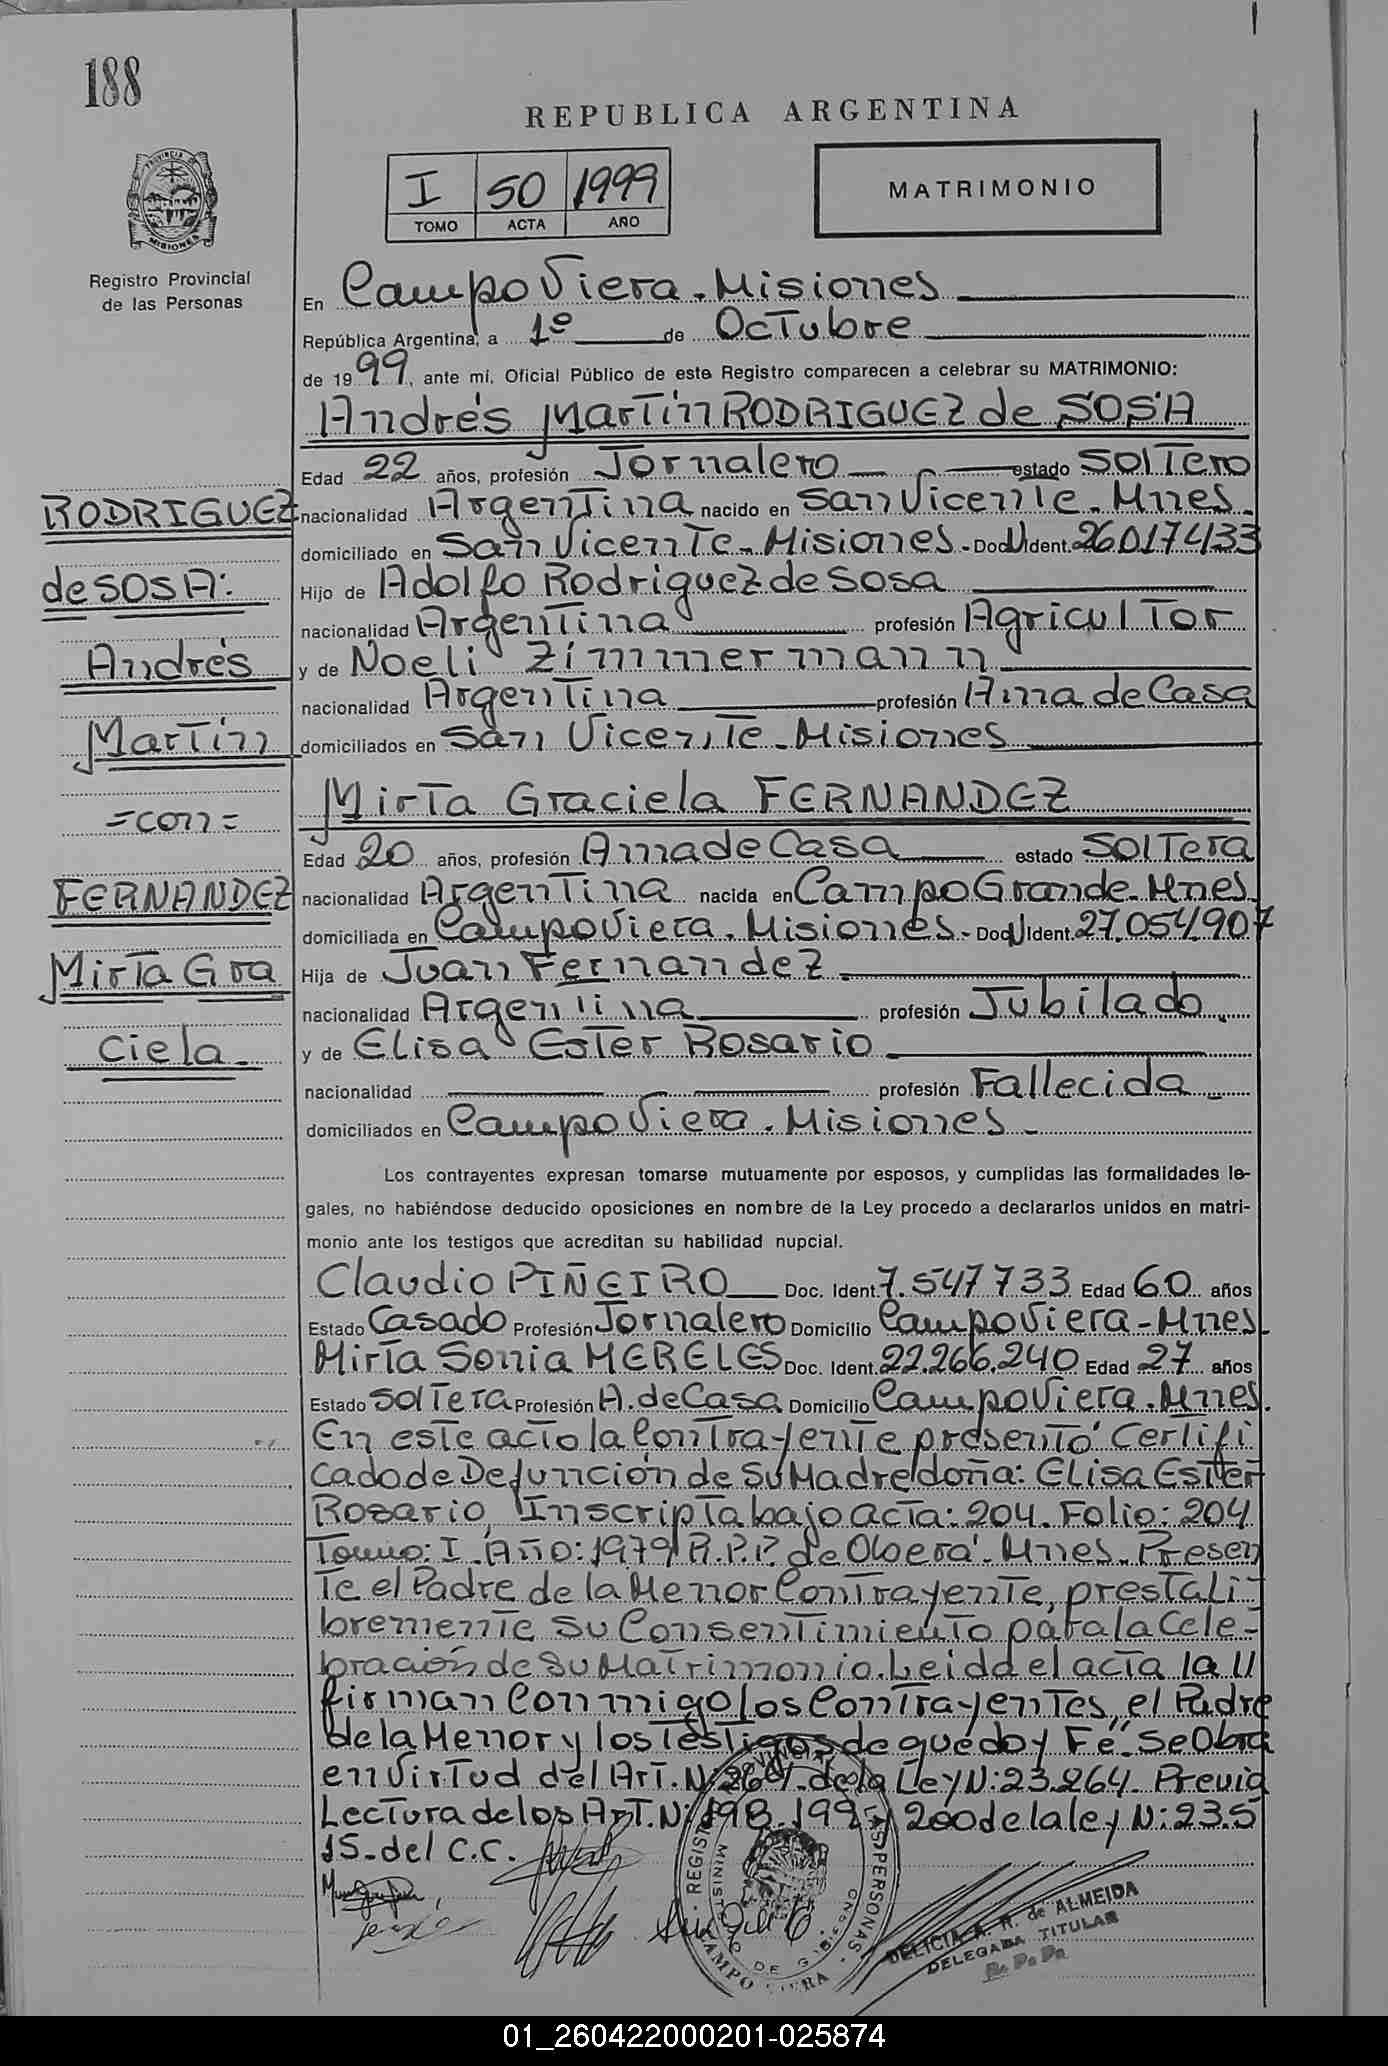 188
REPUBLICA ARGENTINA
I 50 1999
TOMO ACTA AÑO
MATRIMONIO
PROVINCIA DE MISIONES
Registro Provincial
de las Personas
En Campo Viera. Misiones
República Argentina, a 1º de Octubre
de 1999, ante mí, Oficial Público de este Registro comparecen a celebrar su MATRIMONIO:
Andrés Martín RODRIGUEZ de SOSA
Edad 22 años, profesión Jornalero estado Soltero
nacionalidad Argentina nacido en San Vicente - Mnes.
domiciliado en San Vicente - Misiones - Doc N Ident. 26017433
Hijo de Adolfo Rodriguez de Sosa
nacionalidad Argentina profesión Agricultor
y de Noeli Zimmermann
nacionalidad Argentina profesión Ama de Casa
domiciliados en San Vicente - Misiones
Mirta Graciela FERNANDEZ
Edad 20 años, profesión Ama de Casa estado Soltera
nacionalidad Argentina nacida en Campo Grande - Mnes.
domiciliada en Campo Viera. Misiones - Doc N Ident. 27.054.907
Hija de Juan Fernandez
nacionalidad Argentina profesión Jubilado.
y de Elisa Ester Rosario
nacionalidad profesión Fallecida
domiciliados en Campo Viera. Misiones -
RODRIGUEZ
de SOSA:
Andrés
Martín
=con=
FERNANDEZ
Mirta Gra
ciela.
Los contrayentes expresan tomarse mutuamente por esposos, y cumplidas las formalidades le-
gales, no habiéndose deducido oposiciones en nombre de la Ley procedo a declararlos unidos en matri-
monio ante los testigos que acreditan su habilidad nupcial.
Claudio PIÑEIRO Doc. Ident. 7.547733 Edad 60 años
Estado Casado Profesión Jornalero Domicilio Campo Viera - Mnes.
Mirta Sonia MERELES Doc. Ident. 22.266.240 Edad 27 años
Estado Soltera Profesión A. de Casa Domicilio Campo Viera. Mnes.
En este acto la Contrayente presentó Certifi
cado de Defunción de su Madre doña: Elisa Ester
Rosario, Inscripta bajo acta: 204. Folio: 204
Tomo: I. Año: 1979 R.P.P. de Oberá - Mnes. Presen
te el Padre de la Menor Contrayente, presta li-
bremente su Consentimiento para la Cele-
bración de su Matrimonio. Leidd el acta la ll
firman Conmigo los Contrayentes, el Padre
de la Menor y los Testigos de que doy Fé. Se Obra
en Virtud del Art. N: 264 de la Ley N: 23.264. Previa
Lectura de los Art. N: 198. 199 y 200 de la ley N: 23.5
15. del C.C.
DELICIA A. R. de ALMEIDA
DELEGADA TITULAR
R. P. P.
01_260422000201-025874